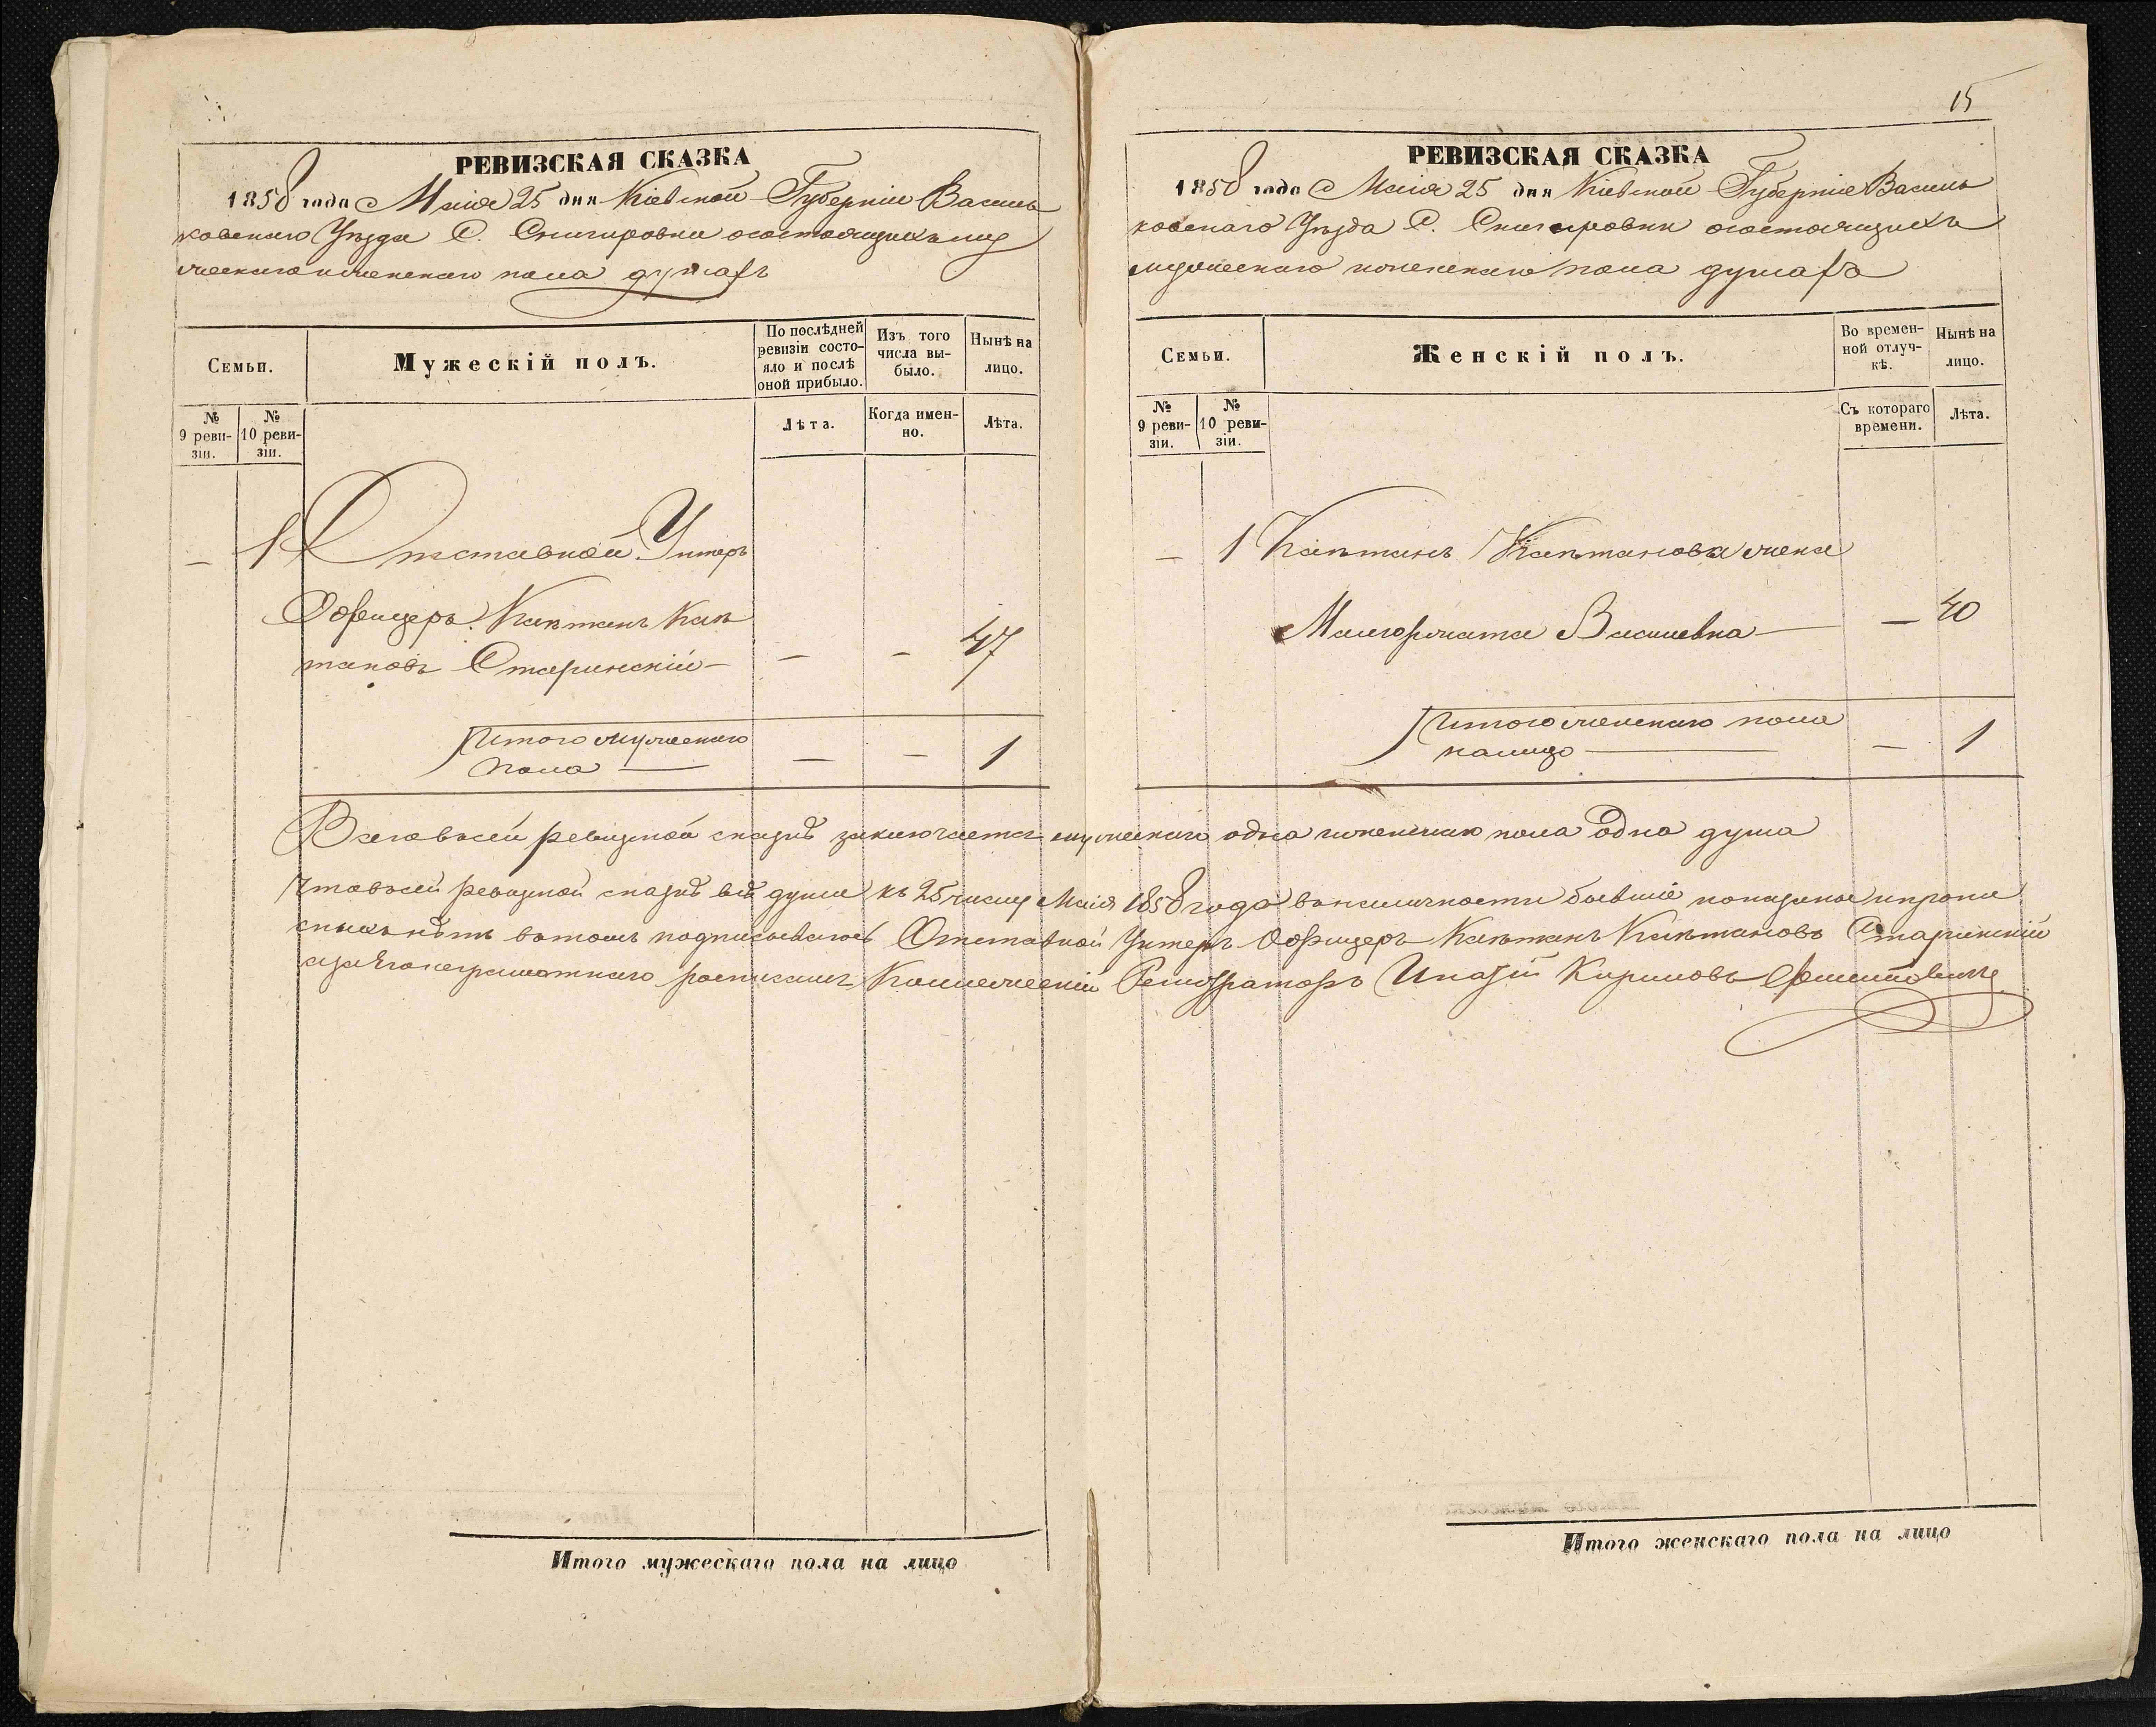 РЕВИЗСКАЯ СКАЗКА
1858 года Маія 25 дня Кіевской Губерніи Василь
ковскаго Уѣзда С. Снигировки осостоящихъ муж
ческаго иженскаго пола душахъ
Семьи.
Мужескій полъ.
По послѣдней
ревизіи состо-
яло и послѣ
оной прибыло.
Изъ того
числа вы-
было.
Нынѣ на
лицо.
№
9 реви-
зіи.
№
10 реви-
зіи.
Лѣта.
Когда имен-
но.
Лѣта.
— 1 Отставной Унтеръ
Офицеръ Каетанъ Кае
тановъ Старинскій — — — 47
Итого мужескаго
пола — — — 1
15
РЕВИЗСКАЯ СКАЗКА
1858 года Маія 25 дня Кіевской Губерніи Василь
ковскаго Уѣзда С. Снигировки осостоящихъ
мужескаго иженскаго пола душахъ
Семьи.
Женскій полъ.
Во времен-
ной отлуч-
кѣ.
Нынѣ на
лицо.
№
9 реви-
зіи.
№
10 реви-
зіи.
Съ котораго
времени.
Лѣта.
— 1 Каетанъ Каетанова жена
Малгоржата Васильевна — — 40
Итого женскаго пола
налицо — — 1
Всего въсей ревизкой сказкѣ заключается мужескаго одна иженскаго пола одна душа
Что въсей ревизкой сказкѣ всѣ души къ 25 числу Маія 1858 года въналичности бывшіе показаны ипропи
сныхъ нѣтъ въ томъ подписываюсь Отставной Унтеръ Офицеръ Каетанъ Каетановъ Старинскій
азаЕго неграмотнаго росписался Коллежскій Регистраторъ Кириловъ
Итого мужескаго пола на лицо
Итого женскаго пола на лицо